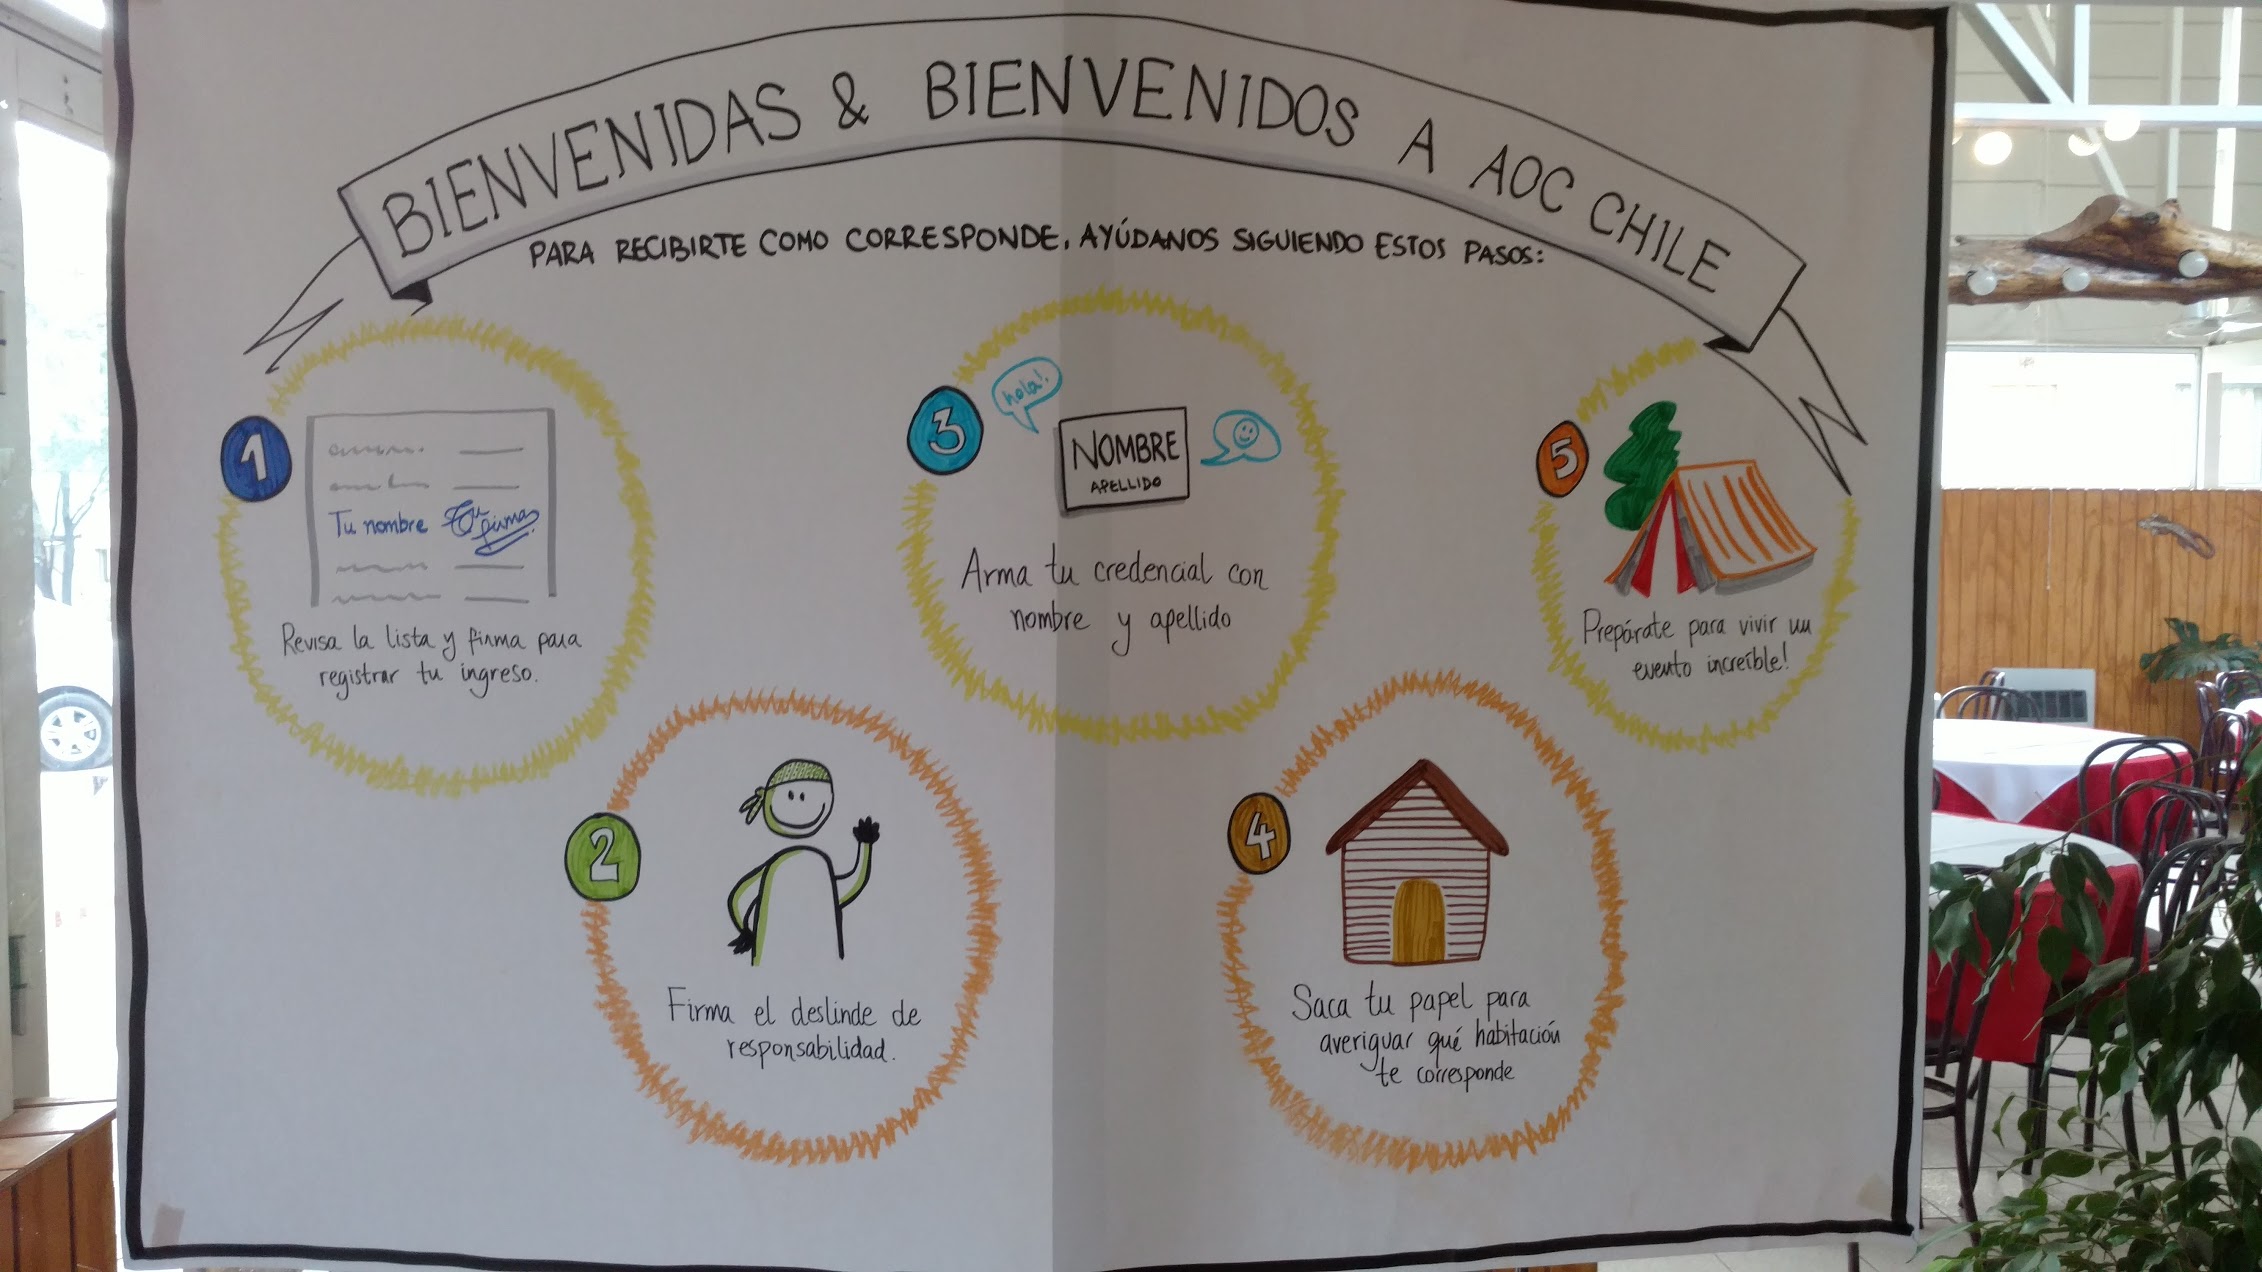 BIENVENIDAS & BIENVENIDOS A AOC CHILE
PARA RECIBIRTE COMO CORRESPONDE, AYÚDANOS SIGUIENDO ESTOS PASOS:
1
Tu nombre Tu firma
Revisa la lista y firma para
registrar tu ingreso.
2
Firma el deslinde de
responsabilidad.
3
hola!
NOMBRE
APELLIDO
Arma tu credencial con
nombre y apellido
4
Saca tu papel para
averiguar qué habitación
te corresponde
5
Prepárate para vivir un
evento increíble!